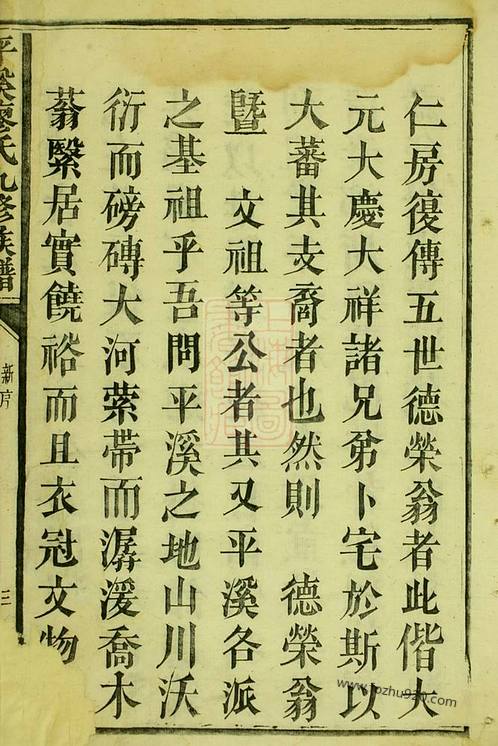 仁房復傳五世德榮翁者此偕大
元大慶大祥諸兄弟卜宅於斯以
大蕃其支裔者也然則　德榮翁
暨　文祖等公者其又平溪各派
之基祖乎吾問平溪之地山川沃
衍而磅礴大河縈帶而潺湲喬木
蓊繄居實饒裕而且衣冠文物
平溪廖氏九修族譜
新序
三
www.fozhu920.com